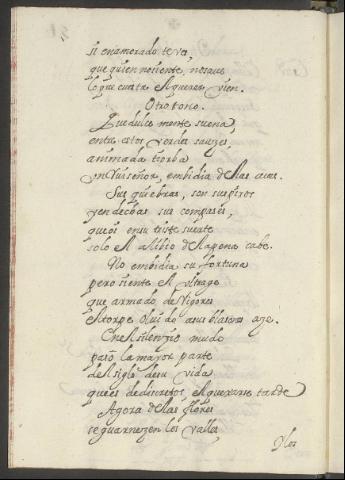 si enamorado te ves,
que quien no siente, no save
lo que cuesta el querer vien.
Otro tono.
Que dulce mente suena,
entre estos verdes sauzes,
animada tiorba
un Ruiseñor, embidia de las aues.
Sus quiebras, son suspiros
y endechas sus compases,
que en su triste suerte
solo el aliuio de la pena cabe.
No embidia su fortuna
pero siente el vltrage
que armado de rigores
el torpe oluido a sus blasones aze.
En el silenzio mudo
pasó la mayor parte
del siglo de su vida
que es de discretos el quexarse tarde
Agora de las flores
se guarnezen los valles
y los